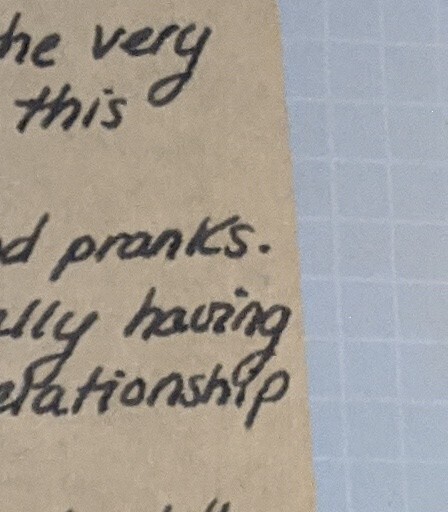 he very
this
d pranks.
ally having
elationship